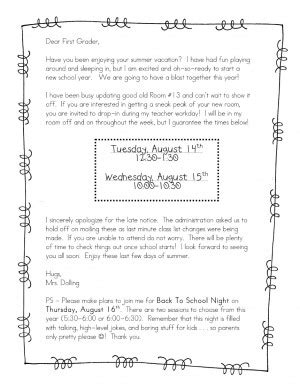 Dear First Grader,
Have you been enjoying your summer vacation? I have had fun playing
around and sleeping in, but I am excited and oh-so-ready to start a
new school year. We are going to have a blast together this year!
I have been busy updating good old Room #13 and can't wait to show it
off. If you are interested in getting a sneak peek of your new room,
you are invited to drop-in during my teacher workday! I will be in my
room off and on throughout the week, but I guarantee the times below!
Tuesday, August 14th
12:30-1:30
Wednesday, August 15th
10:00-10:30
I sincerely apologize for the late notice. The administration asked us to
hold off on mailing these as last minute class list changes were being
made. If you are unable to attend do not worry. There will be plenty
of time to check things out once school starts! I look forward to seeing
you all soon. Enjoy these last few days of summer.
Hugs,
Mrs. Dolling
PS - Please make plans to join me for Back To School Night on
Thursday, August 16th. There are two sessions to choose from this
year (5:30-6:00 or 6:00-6:30). Remember that this night is filled
with talking, high-level jokes, and boring stuff for kids . . . so parents
only pretty please ☺! Thank you.